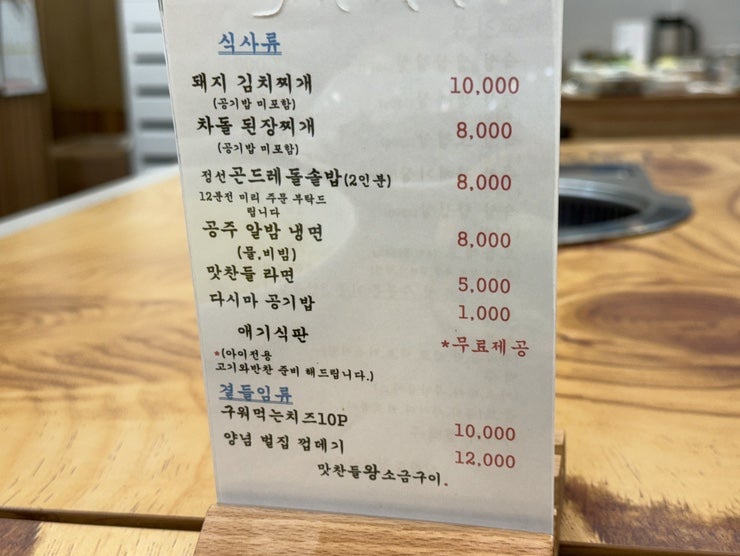 식사류
돼지 김치찌개 10,000
(공기밥 미포함)
차돌 된장찌개 8,000
(공기밥 미포함)
정선곤드레돌솥밥(2인분) 8,000
12분전 미리 주문 부탁드
립니다
공주 알밤 냉면 8,000
(물,비빔)
맛찬들 라면 5,000
다시마 공기밥 1,000
애기식판 *무료제공
*(아이전용
고기와반찬 준비 해드립니다.)
곁들임류
구워먹는치즈10P 10,000
양념 벌집 껍데기 12,000
맛찬들왕소금구이.